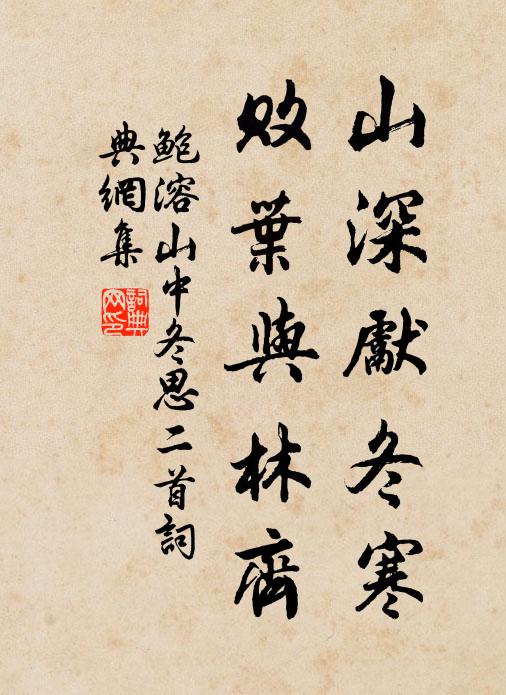 山深獻冬寒
敗葉與林齊
鮑溶山中冬思二首詞
典網集
詞典
网印